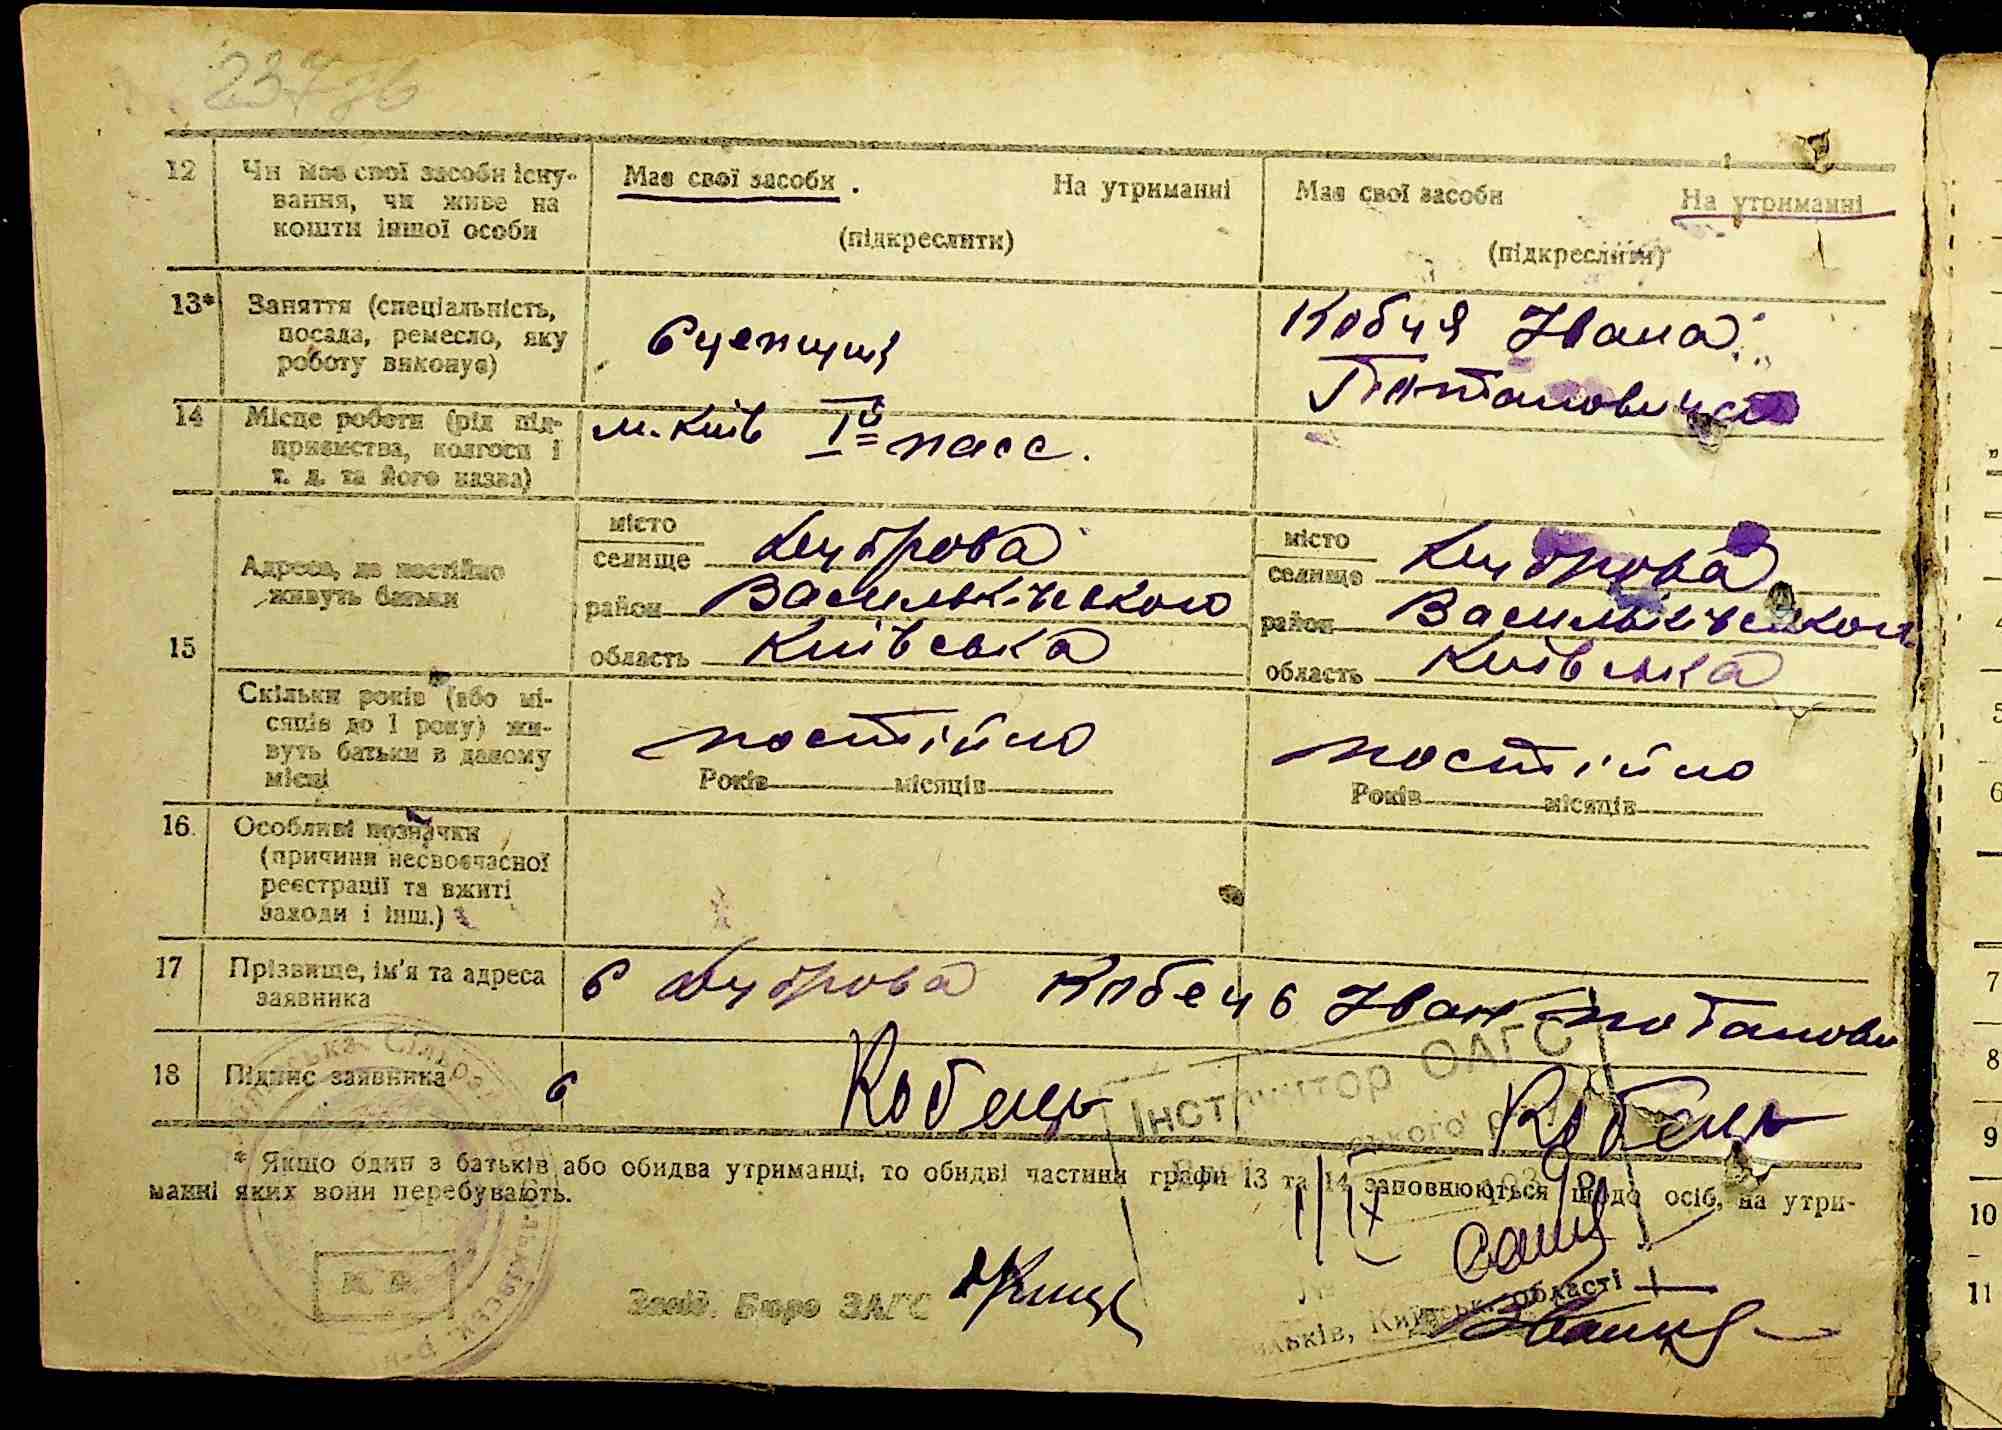 12 Чи має свої засоби існу-
вання, чи живе на
кошти іншої особи
Має свої засоби . На утриманні
(підкреслити)
Має свої засоби На утриманні
(підкреслити)
13* Заняття (спеціальність,
посада, ремесло, яку
роботу виконує)
Кобця Івана
Потаповича
14 Місце роботи (рід під-
приємства, колгосп і
т. д. та його назва)
м. Київ
15 Адреса, де постійно
живуть батьки
місто
селище Дуброва
район Васильківського
область Київська
місто
селище Дуброва
район Васильківського
область Київська
Скільки років (або мі-
сяців до 1 року) жи-
вуть батьки в даному
місці
постійно
Років місяців
постійно
Років місяців
16. Особливі позначки
(причини несвоєчасної
реєстрації та вжиті
заходи і інш.)
17 Прізвище, ім'я та адреса
заявника
с Дуброва Кобець Іван Потапови
18 Підпис заявника
Кобець Кобець
Інструктор ОАГС
* Якщо один з батьків або обидва утриманці, то обидві частини графи 13 та 14 заповнюються щодо осіб, на утри-
манні яких вони перебувають.
Завід. Бюро ЗАГС
області
5
6
7
8
9
10
11